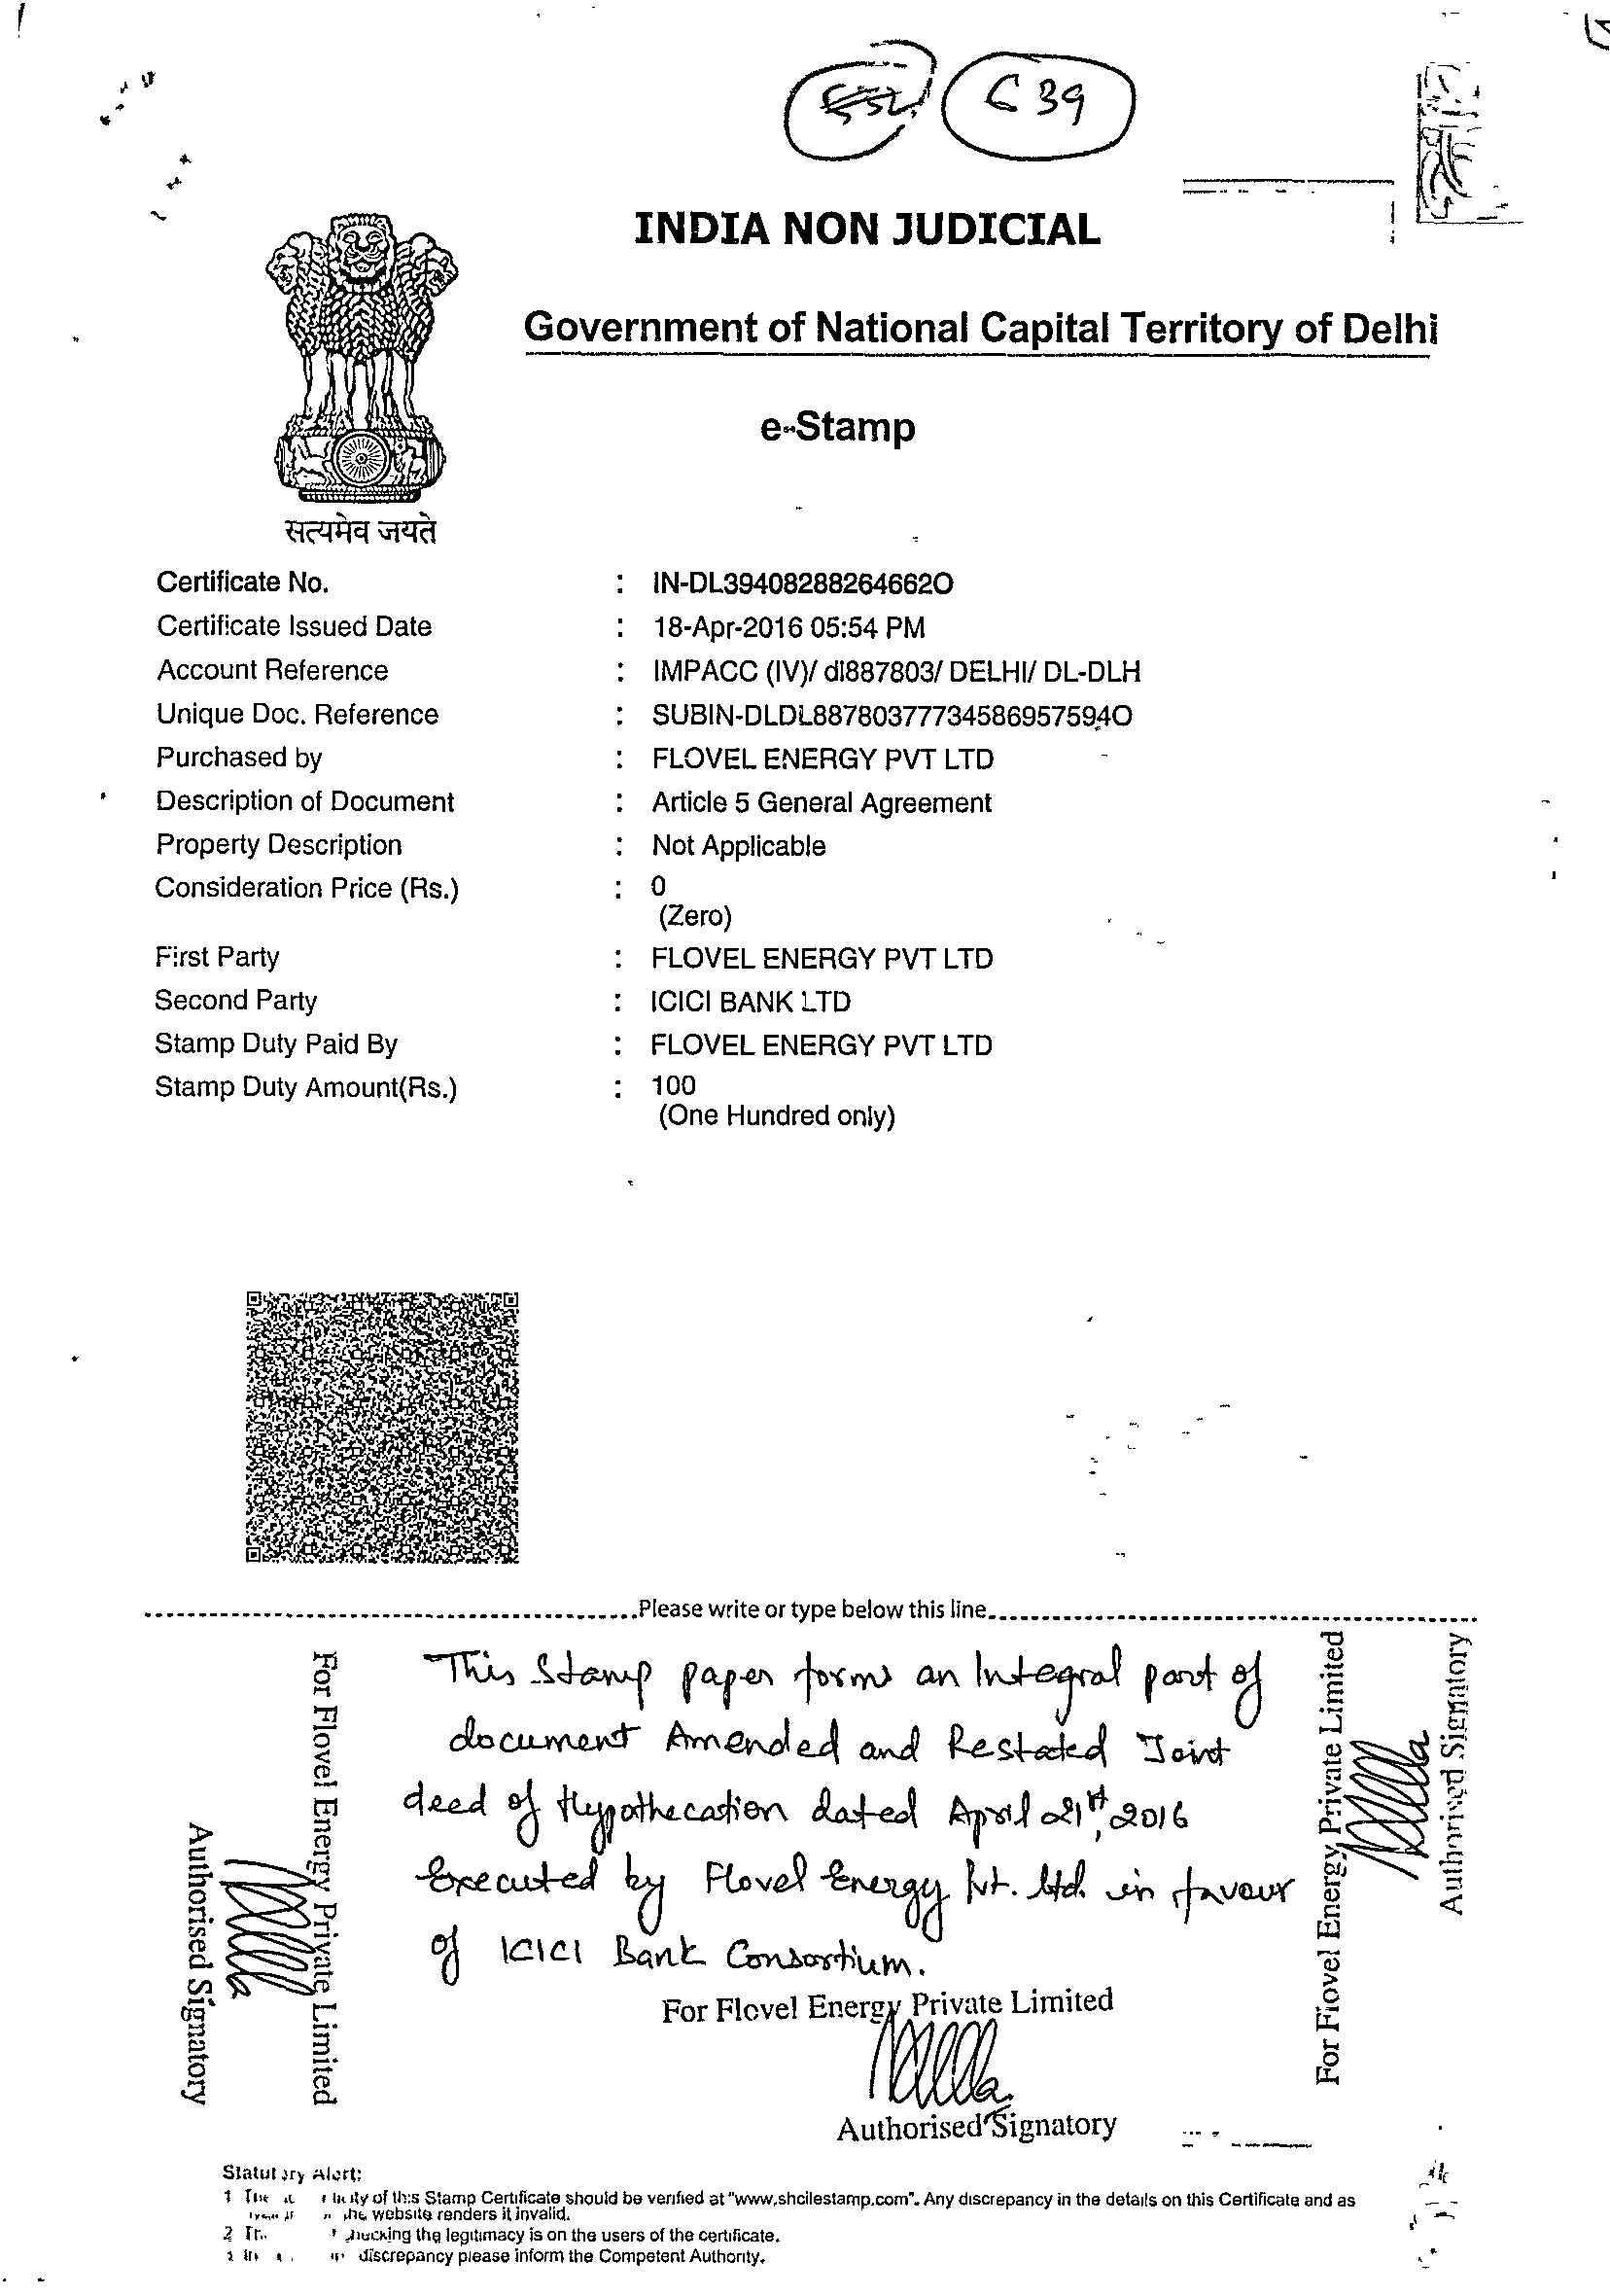 639
INDIA NON JUDICIAL
Government of National Capital Territory of Delhi
e-Stamp
सत्यमेव जयते
Certificate No. : IN-DL39408288264662O
Certificate Issued Date : 18-Apr-2016 05:54 PM
Account Reference : IMPACC (IV)/ dl887803/ DELHI/ DL-DLH
Unique Doc. Reference : SUBIN-DLDL88780377734586957594O
Purchased by : FLOVEL ENERGY PVT LTD
Description of Document : Article 5 General Agreement
Property Description : Not Applicable
Consideration Price (Rs.) : 0
(Zero)
First Party : FLOVEL ENERGY PVT LTD
Second Party : ICICI BANK LTD
Stamp Duty Paid By : FLOVEL ENERGY PVT LTD
Stamp Duty Amount(Rs.) : 100
(One Hundred only)
Please write or type below this line
This Stamp paper forms an Integral part of
document Amended and Restated Joint
deed of Hypothecation dated April 21st, 2016
Executed by Flovel Energy Pvt. Ltd. in favour
of ICICI Bank Consortium.
For Flovel Energy Private Limited
Authorised Signatory
For Flovel Energy Private Limited
Authorised Signatory
For Flovel Energy Private Limited
Authorised Signatory
Statutory Alert:
1 of this Stamp Certificate should be verified at "www.shcilestamp.com". Any discrepancy in the details on this Certificate and as
website renders it invalid.
2 checking the legitimacy is on the users of the certificate.
discrepancy please inform the Competent Authority.